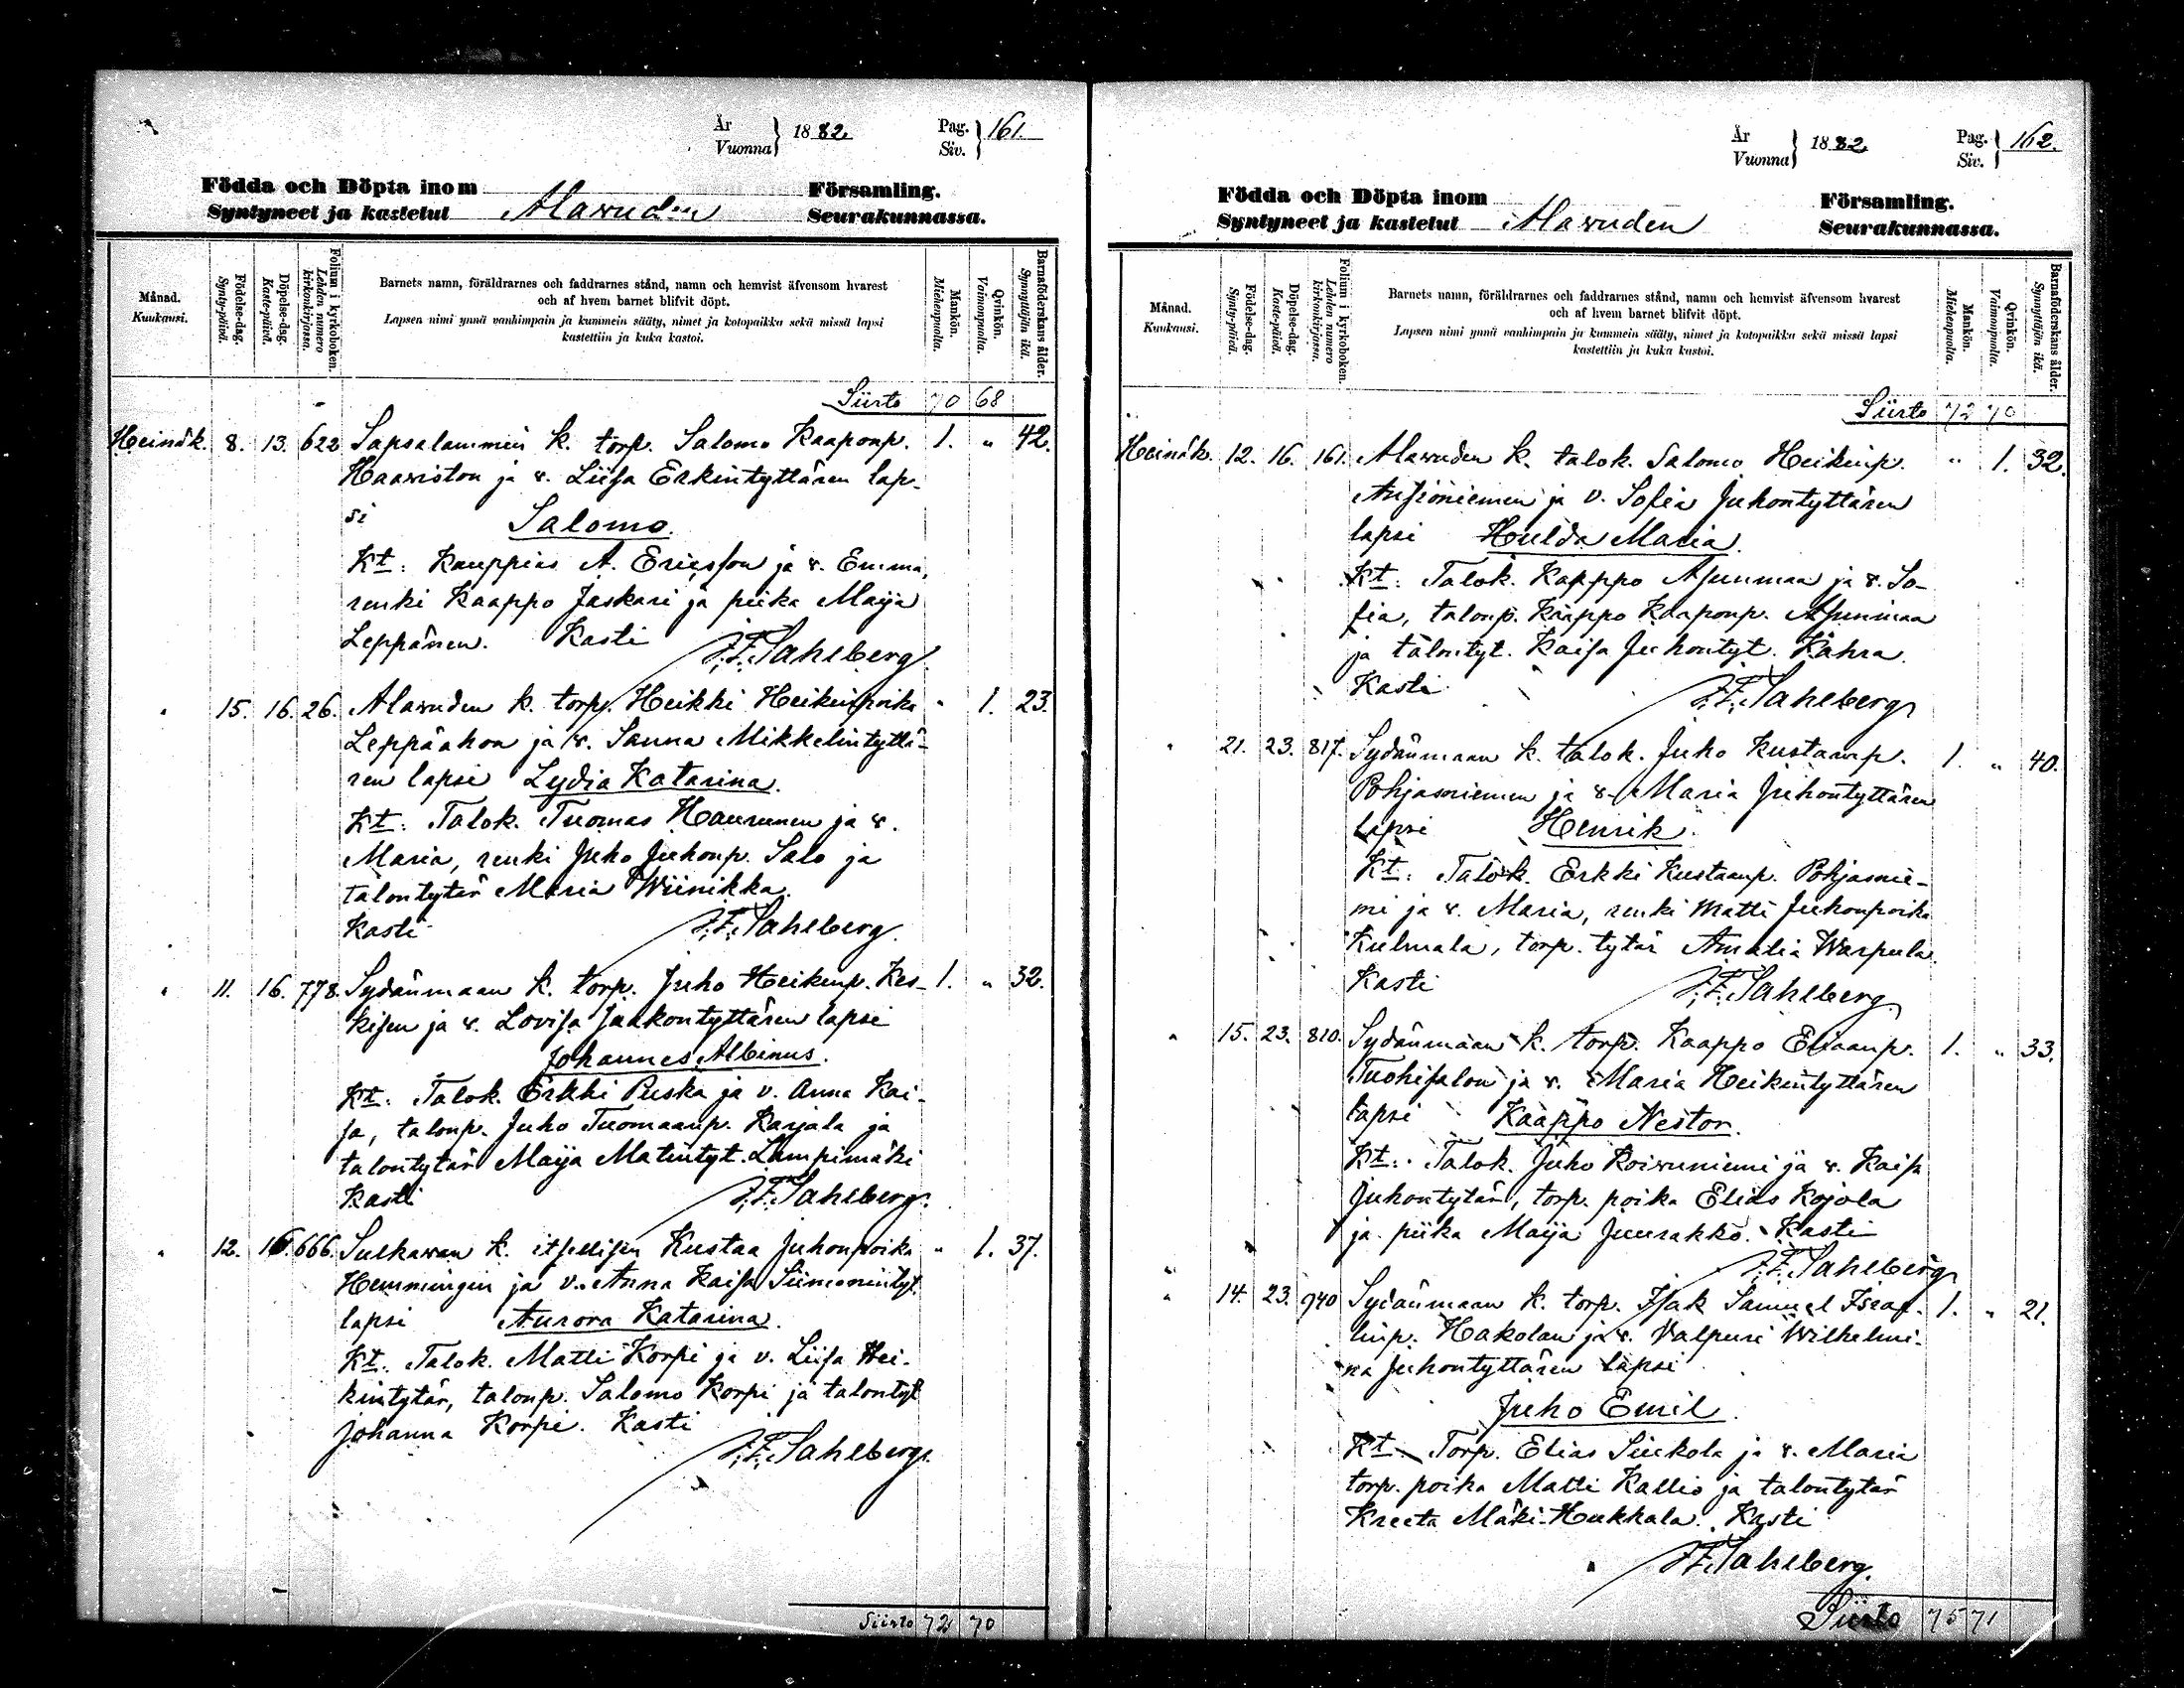 År
Vuonna } 1882. Pag.
Siv. } 161.
Födda och Döpta inom Församling.
Syntyneet ja kastetut Alavuden Seurakunnassa.
Månad.
Kuukausi.
Födelse-dag.
Synty-päivä.
Döpelse-dag.
Kaste-päivä.
Folium i kyrkoboken.
Lehden numero
kirkonkirjassa.
Barnets namn, föräldrarnes och faddrarnes stånd, namn och hemvist äfvensom hvarest
och af hvem barnet blifvit döpt.
Lapsen nimi ynnä vanhimpain ja kummein sääty, nimet ja kotopaikka sekä missä lapsi
kastettiin ja kuka kastoi.
Mankön.
Miehenpuolta.
Qvinkön.
Vaimonpuolta.
Barnaföderskans ålder.
Synnyttäjän ikä.
Siirto 70 68
Heinäk. 8. 13. 622 Sapsalammin k. torp. Salomo Kaaponp. 1. " 42.
Haaviston ja v. Liisa Erkintyttären lap-
si Salomo.
Kt: Kauppias A. Ericsson ja v. Emma,
renki Kaappo Jaskari ja piika Maija
Leppänen. Kasti J. F. Sahlberg
" 15. 16. 26. Alavuden k. torp. Heikki Heikinpoika " 1. 23.
Leppäahon ja v. Sanna Mikkelintyttä-
ren lapsi Lydia Katarina.
Kt: Talok. Tuomas Haurunen ja v.
Maria, renki Juho Juhonp. Salo ja
talontytär Maria Wiinikka.
Kasti J. F. Sahlberg.
" 11. 16. 778. Sydänmaan k. torp. Juho Heikinp. Kes- 1. " 32.
kisen ja v. Lovisa Jaakontyttären lapsi
Johannes Albinus.
Kt: Talok. Erkki Puska ja v. Anna Kai-
sa, talonp. Juho Tuomaanp. Karjala ja
talontytär Maija Matintyt. Lampimäki
Kasti J. F. Sahlberg.
" 12. 16. 666. Sulkavan k. itsellisen Kustaa Juhonpoika " 1. 37.
Hemmingin ja v. Anna Kaisa Siimonintyt.
lapsi Aurora Katarina.
Kt: Talok. Matti Korpi ja v. Liisa Hei-
kintytär, talonp. Salomo Korpi ja talontyt
Johanna Korpi. Kasti
J. F. Sahlberg.
Siirto 72 70
År
Vuonna } 1882. Pag.
Siv. } 162.
Födda och Döpta inom Församling.
Syntyneet ja kastetut Alavuden Seurakunnassa.
Månad.
Kuukausi.
Födelse-dag.
Synty-päivä.
Döpelse-dag.
Kaste-päivä.
Folium i kyrkoboken.
Lehden numero
kirkonkirjassa.
Barnets namn, föräldrarnes och faddrarnes stånd, namn och hemvist äfvensom hvarest
och af hvem barnet blifvit döpt.
Lapsen nimi ynnä vanhimpain ja kummein sääty, nimet ja kotopaikka sekä missä lapsi
kastettiin ja kuka kastoi.
Mankön.
Miehenpuolta.
Qvinkön.
Vaimonpuolta.
Barnaföderskans ålder.
Synnyttäjän ikä.
Siirto 72 70
Heinäk. 12. 16. 161. Alavuden k. talok. Salomo Heikinp. " 1. 32.
Ansioniemen ja v. Sofia Juhontyttären
lapsi Hulda Maria.
Kt: Talok. Kaappo Asunmaa ja v. So-
fia, talonp. Kaappo Kaaponp. Asunmaa
ja talontyt. Kaisa Juhontyt. Kähra.
Kasti J. F. Sahlberg
" 21. 23. 817. Sydänmaan k. talok. Juho Kustaanp. 1. " 40.
Pohjasniemen ja v. Maria Juhontyttären
lapsi Henrik.
Kt: Talok. Erkki Kustaanp. Pohjasnie-
mi ja v. Maria, renki Matti Juhonpoika
Kulmala, torp. tytär Amalia Warpula.
Kasti J. F. Sahlberg.
" 15. 23. 810. Sydänmaan k. torp. Kaappo Eliaanp. 1. " 33.
Tuohisalon ja v. Maria Heikintyttären
lapsi Kaappo Nestor.
Kt: Talok. Juho Koivuniemi ja v. Kaisa
Juhontytär, torp. poika Elias Kojola
ja piika Maija Juurakko. Kasti
J. F. Sahlberg
" 14. 23. 940 Sydänmaan k. torp. Isak Samuel Israe- 1. " 21.
linp. Hakolan ja v. Valpuri Wilhelmi-
na Juhontyttären lapsi
Juho Emil.
Kt: Torp. Elias Siukola ja v. Maria
torp. poika Matti Kallio ja talontytär
Kreeta Mäki-Hukkala. Kasti
J. F. Sahlberg.
Siirto 75 71